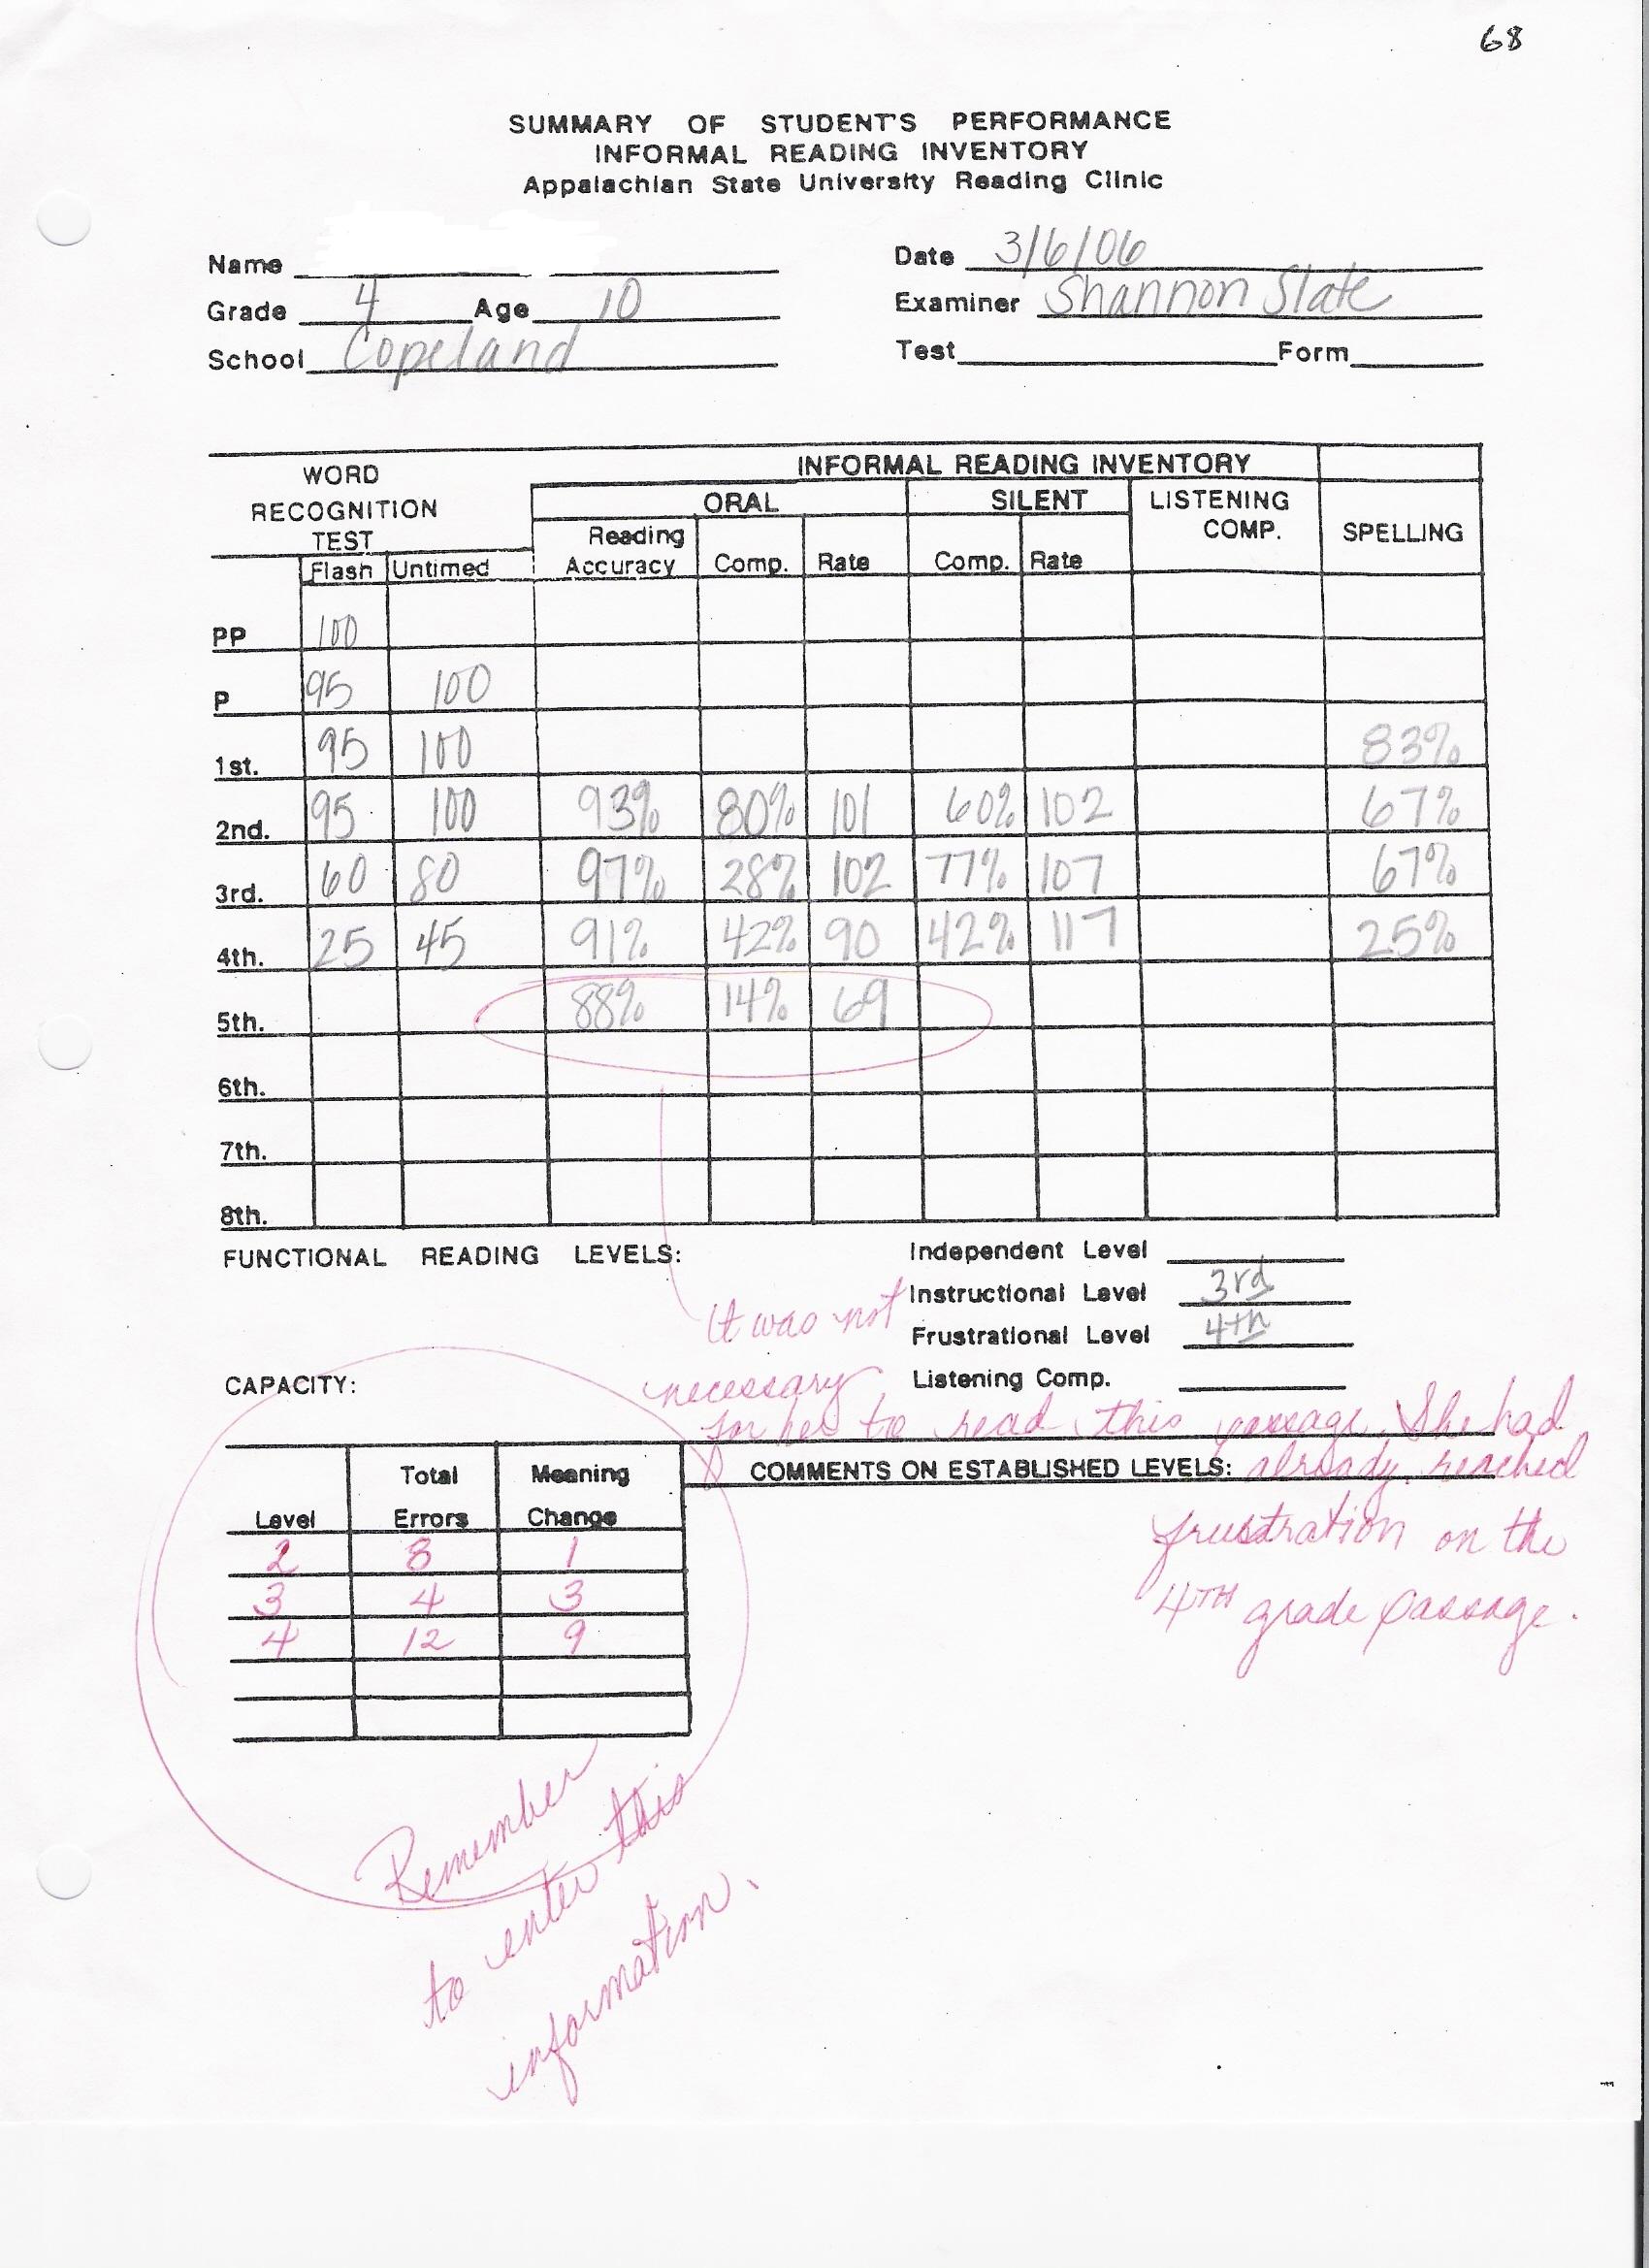 68
SUMMARY OF STUDENT'S PERFORMANCE
INFORMAL READING INVENTORY
Appalachian State University Reading Clinic
Name
Date 3/6/06
Grade 4 Age 10
Examiner Shannon Slate
School Copeland
Test Form
WORD RECOGNITION TEST
INFORMAL READING INVENTORY
ORAL SILENT LISTENING COMP. SPELLING
Flash Untimed Reading Accuracy Comp. Rate Comp. Rate
PP 100
P 95 100
1st. 95 100 83%
2nd. 95 100 93% 80% 101 60% 102 67%
3rd. 60 80 97% 28% 102 77% 107 67%
4th. 25 45 91% 42% 90 42% 117 25%
5th. 88% 14% 69
6th.
7th.
8th.
FUNCTIONAL READING LEVELS:
Independent Level
Instructional Level 3rd
Frustrational Level 4th
Listening Comp.
CAPACITY:
It was not
necessary
for her to read this passage. She had
already reached
frustration on the
4TH grade passage.
COMMENTS ON ESTABLISHED LEVELS:
Level Total Errors Meaning Change
2 8 1
3 4 3
4 12 9
Remember
to enter this
information.